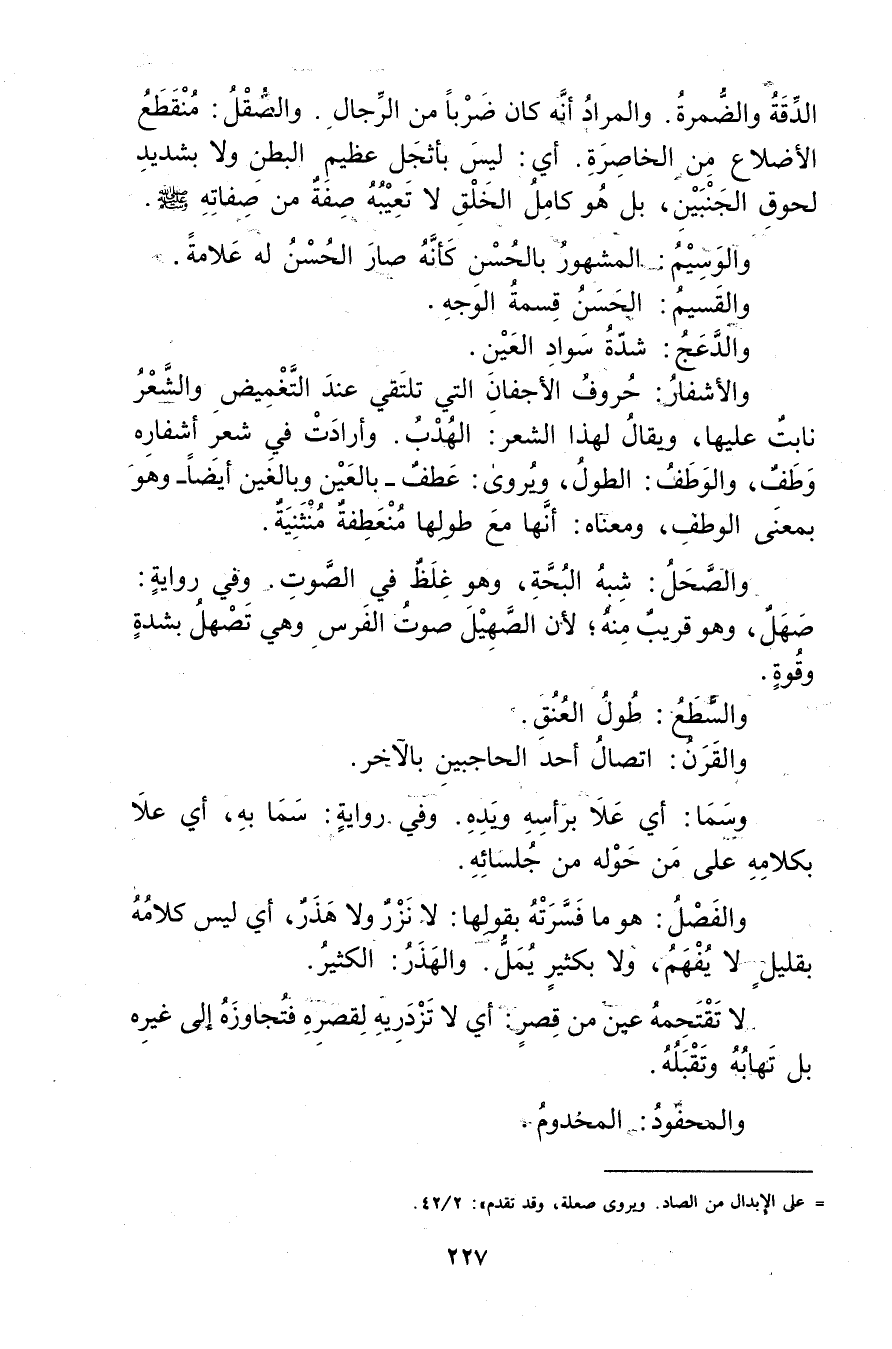 الدِّقَةُ والضُّمرةُ. والمرادُ أنَّه كان ضَرْباً من الرِّجال. والصُّقْلُ: مُنْقَطَعُ
الأضلاع مِن الخاصِرَةِ. أي: ليسَ بأثجَل عظيمِ البطنِ ولا بشديدِ
لحوقِ الجَنْبَيْنِ، بل هُو كامِلُ الخَلْقِ لا تَعِيْبُهُ صِفَةٌ من صِفاتِهِ ﷺ.
والوَسِيْمُ: المشهورُ بالحُسْنِ كَأنَّهُ صارَ الحُسْنُ له عَلامةً.
والقَسيمُ: الحَسَنُ قِسمةُ الوَجهِ.
والدَّعَجُ: شدّةُ سَوادِ العَيْنِ.
والأشفارُ: حُروفُ الأجفانَ التي تلتَقي عندَ التَّغْميضِ والشَّعْرُ
نابتٌ عليها، ويقالُ لهذا الشعر: الهُدْبُ. وأرادَتْ في شعرِ أشفاره
وَطَفٌ، والوَطَفُ: الطولُ، ويُروىٰ: عَطفٌ ـ بالعَيْن وبالغَين أيضاً ـ وهوَ
بمعنَى الوطفِ، ومعنَاه: أنَّها معَ طولِها مُنْعَطِفةٌ مُنْثَنِيَةٌ.
والصَّحَلُ: شِبهُ البُحَّةِ، وهو غِلَظٌ في الصَّوتِ. وفي روايةٍ:
صَهَلٌ، وهو قريبٌ مِنهُ؛ لأن الصَّهِيْلَ صوتُ الفَرس وهي تَصْهلُ بشدةٍ
وقُوةٍ.
والسَّطَعُ: طُولُ العُنُقَ.
والقَرَنُ: اتصالُ أحد الحاجبينِ بالآخر.
وسَمَا: أي عَلَا برَأسِهِ ويَدِهِ. وفي روايةٍ: سَمَا بهِ، أي علَا
بكلامِهِ على مَن حَوْله من جُلسَائِهِ.
والفَصْلُ: هو ما فَسَّرَتْهُ بقولِها: لا نَزْرٌ ولا هَذَرٌ، أي ليس كلامُهُ
بقليلٍ لا يُفْهَمُ، ولا بكثيرٍ يُمَلُّ. والهَذَرُ: الكثيرُ.
لا تَقْتَحِمهُ عينٌ من قِصرٍ: أي لا تَزْدَرِيهِ لِقصرَهِ فتُجاوزَهُ إلى غيرِه
بل تَهابُهُ وتَقْبَلُهُ.
والمحفُودُ: المخدومُ.
= على الإبدال من الصاد. ويروى صعلة، وقد تقدم»: ٤٢/٢.
٢٢٧